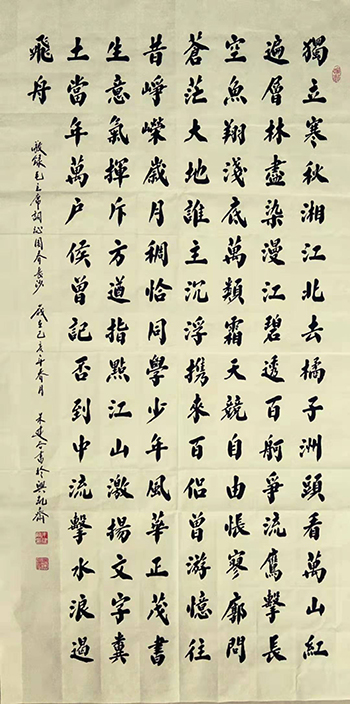 獨立寒秋湘江北去橘子洲頭看萬山紅
遍層林盡染漫江碧透百舸爭流鷹擊長
空魚翔淺底萬類霜天競自由悵寥廓問
蒼茫大地誰主沉浮携來百侶曾游憶往
昔崢嶸歲月稠恰同學少年風華正茂書
生意氣揮斥方遒指點江山激揚文字糞
土當年萬戶侯曾記否到中流擊水浪遏
飛舟
敬錄毛主席詞沁園春長沙 歲在己亥年春月